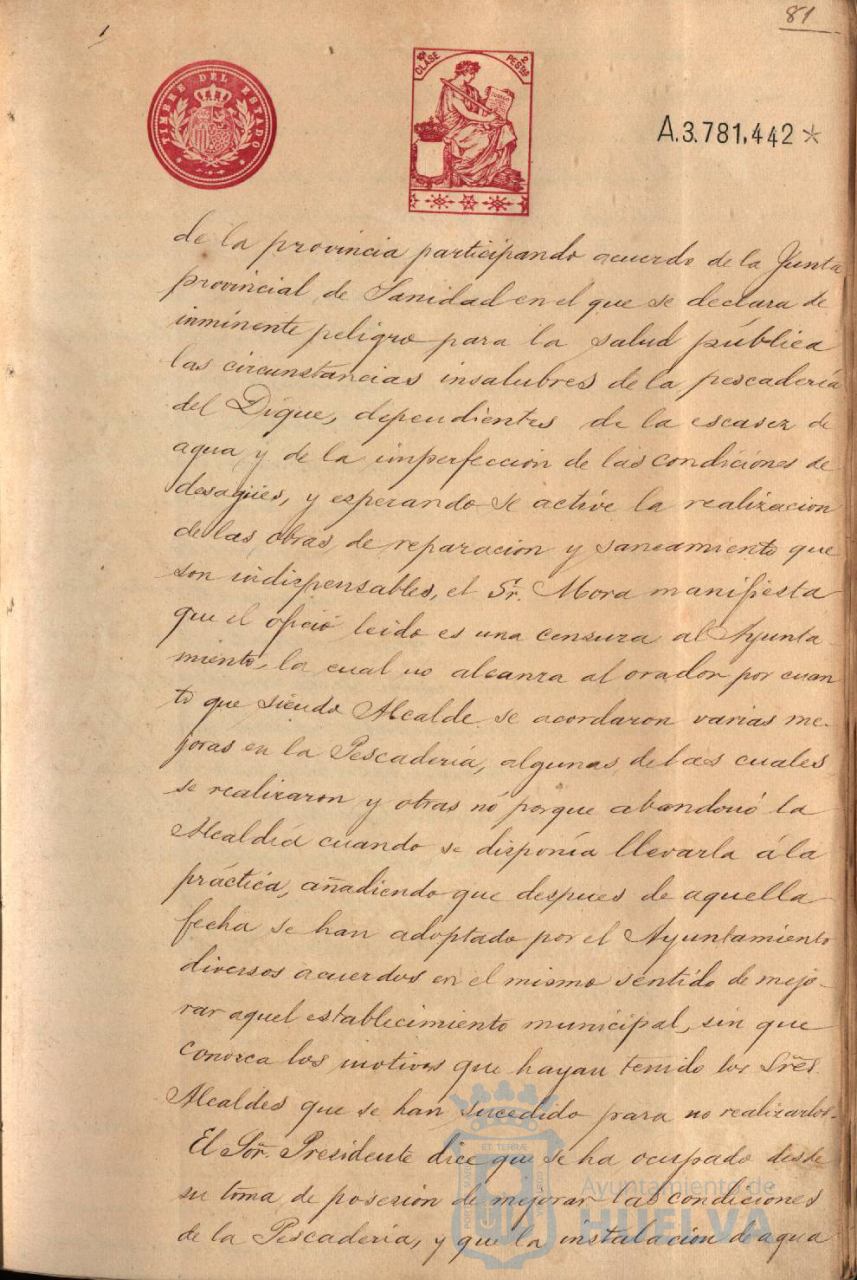 1
81
TIMBRE DEL ESTADO
10ª CLASE
2 PESTAS
A.3.781,442*
de la provincia participando acuerdo de la Junta
provincial de Sanidad en el que se declara de
inminente peligro para la salud pública
las circunstancias insalubres de la pescadería
del Dique, dependientes de la escasez de
agua y de la imperfección de las condiciones de
desagües, y esperando se active la realizacion
de las obras de reparacion y saneamiento que
son indispensables, el Sr. Mora manifiesta
que el oficio leido es una censura al Ayunta-
miento, la cual no alcanza al orador por cuan
to que siendo Alcalde se acordaron varias me-
joras en la Pescadería, algunas de las cuales
se realizaron y otras nó porque abandonó la
Alcaldía cuando se disponía llevarla á la
práctica, añadiendo que despues de aquella
fecha se han adoptado por el Ayuntamiento
diversos acuerdos en el mismo sentido de mejo-
rar aquel establecimiento municipal, sin que
conozca los motivos que hayan tenido los Sres.
Alcaldes que se han sucedido para no realizarlos.
El Sor. Presidente dice que se ha ocupado desde
su toma de posesión de mejorar las condiciones
de la Pescadería, y que la instalación de agua
Ayuntamiento de
HUELVA